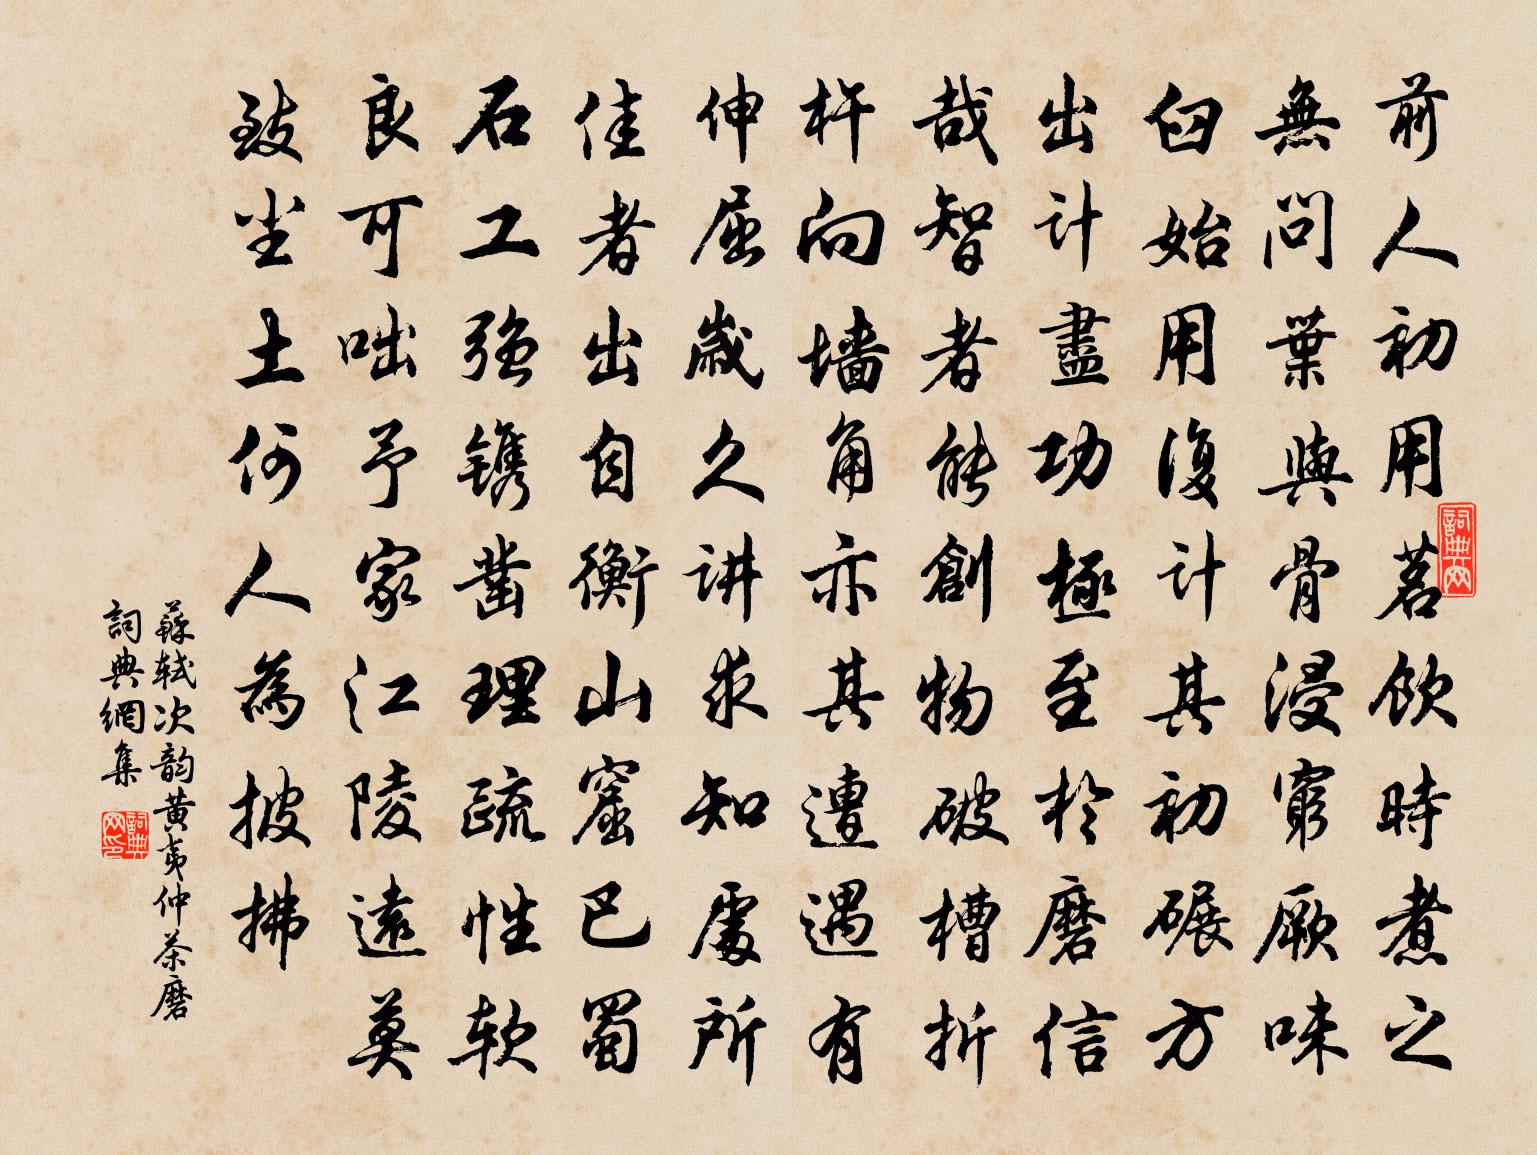 前人初用茗飲時煮之
無問葉與骨浸窮厥味
臼始用復計其初碾方
出計盡功極至於磨信
哉智者能創物破槽折
杵向墙角亦其遭遇有
伸屈歲久讲求知處所
佳者出自衡山窟巴蜀
石工强镌凿理疏性软
良可咄予家江陵遠莫
致尘土何人為披拂
蘇軾次韵黄夷仲茶磨
詞典網集
詞典网
詞典网印